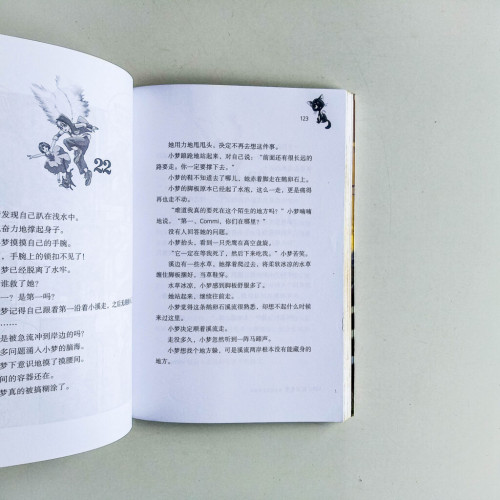 22
发现自己趴在浅水中。
奋力地撑起身子。
梦摸摸自己的手腕。
，手腕上的锁扣不见了!
梦已经脱离了水牢。
谁救了她?
——? 是第一吗?
梦记得自己跟着第一沿着小溪走,之后
……
是被急流冲到岸边的吗?
多问题涌入小梦的脑海。
梦下意识地摸了摸腰间。
间的容器还在。
梦真的被搞糊涂了。
123
她用力地甩甩头，决定不再去想这件事。
小梦踉跄地站起来，对自己说：“前面还有很长远的
路要走，你一定要撑下去。”
小梦的鞋不知道去了哪儿，她赤着脚走在鹅卵石上。
小梦的脚板原本已经起了水泡，这么一走，更是痛得
再也走不动。
“难道我真的要死在这个陌生的地方吗？”小梦喃喃
地说，“第一、Commi，你们在哪里？”
没有人回答她的问题。
小梦抬头，看到一只秃鹰在高空盘旋。
“它一定在等我死，然后下来吃我。”小梦苦笑。
溪边有一些水草，她撑着爬过去，将柔软冰凉的水草
缠住脚板擦好，当草鞋穿。
水草冰凉，小梦感到脚板舒服多了。
她站起来，继续往前走。
小梦觉得这条鹅卵石溪流很熟悉，却想不起什么时候
来过这里。
小梦决定顺着溪流走。
走没多久，小梦忽然听到一阵马蹄声。
小梦想找个地方躲，可是溪流两岸根本没有能藏身的
地方。